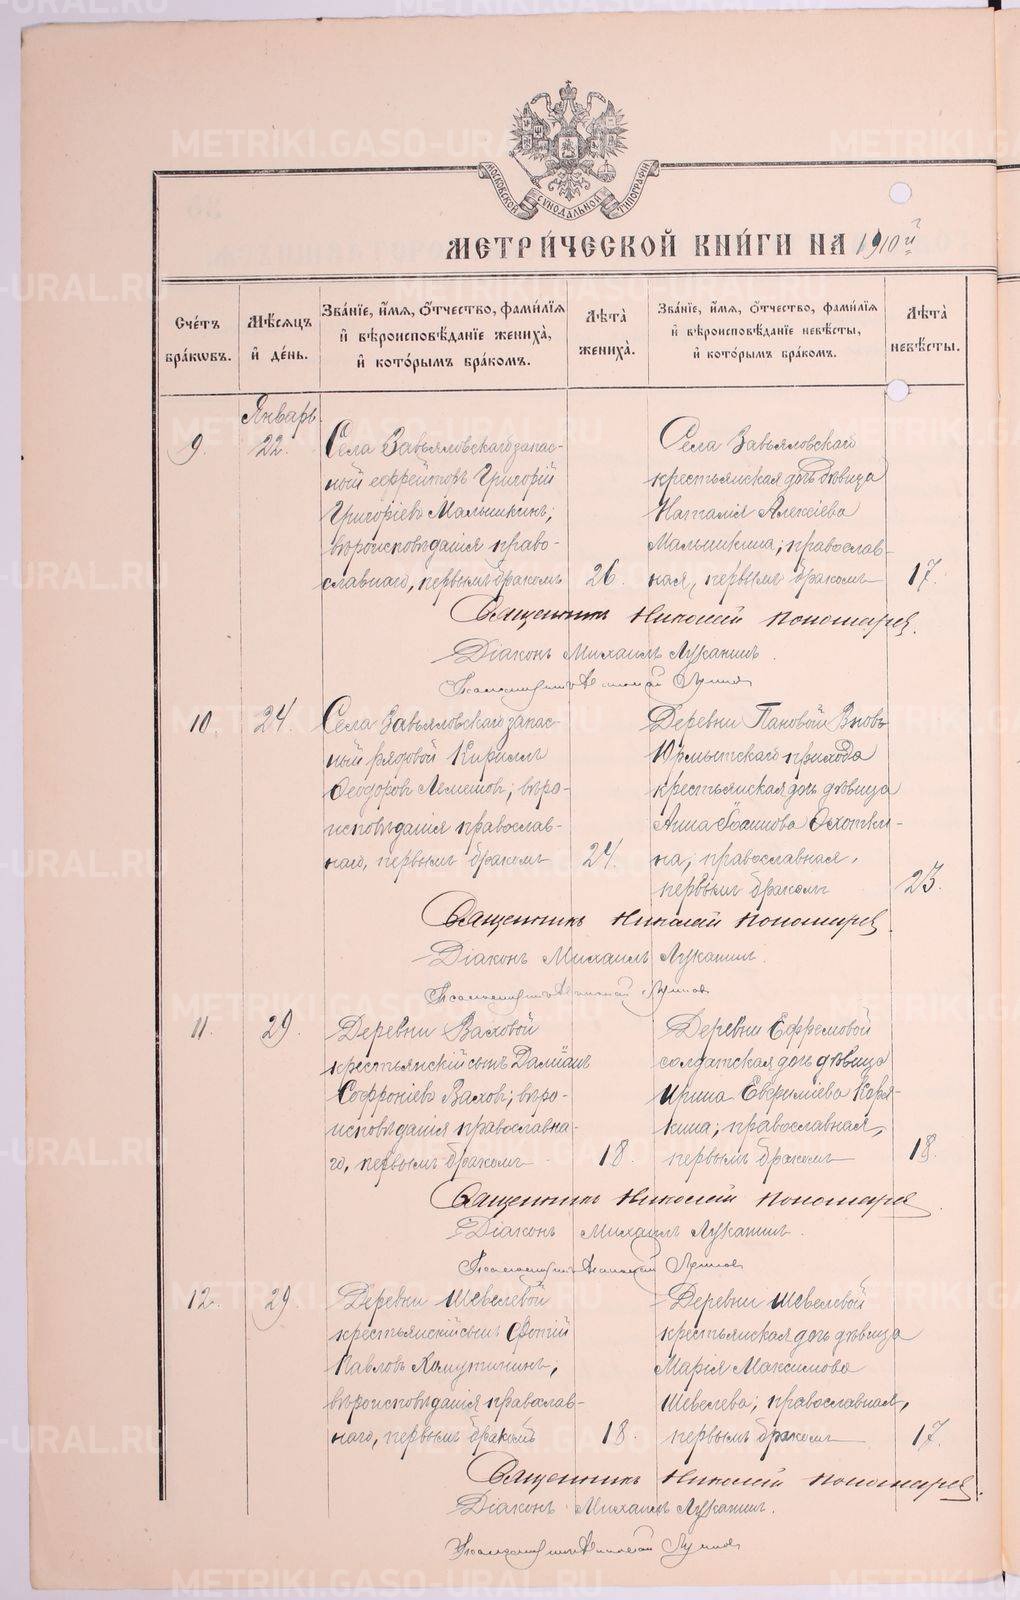 МОСКОВСКОЙ СѴНОДАЛЬНОЙ ТИПОГРАФІИ
МЕТРИ́ЧЕСКОЙ КНИ́ГИ НА 1910й г
Сче́тъ бра́кωвъ.
Мѣ́сяцъ и҆ де́нь.
Зва́нїе, и҆́мѧ, ѻ҆́тчество, фами́лїѧ и҆ вѣроисповѣ́данїе жениха̀, и҆ кото́рымъ бра́комъ.
Лѣта̀ жениха̀.
Зва́нїе, и҆́мѧ, ѻ҆́тчество, фами́лїѧ и҆ вѣроисповѣ́данїе невѣ́сты, и҆ кото́рымъ бра́комъ.
Лѣта̀ невѣ́сты.
Январь
9. 22.
Села Завьяловскаго запас-
ной ефрейторъ Григорій
Григоріевъ Малышкинъ;
вѣроисповѣданія право-
славнаго, первымъ бракомъ
26.
Села Завьяловскаго
крестьянская дочь дѣвица
Наталія Алексіева
Малышкина; православ-
ная, первымъ бракомъ
17.
Священникъ Николай Пономаревъ.
Діаконъ Михаилъ Лукашинъ.
Псаломщикъ
10. 24.
Села Завьяловскаго запас-
ный рядовой Кириллъ
Ѳеодоровъ Лемешовъ; вѣро-
исповѣданія православ-
наго, первымъ бракомъ
24.
Деревни Пановой Вновь
Юрмытскаго прихода
крестьянская дочь дѣвица
Анна Іоаннова Охоткин-
на; православная,
первымъ бракомъ
23.
Священникъ Николай Пономаревъ.
Діаконъ Михаилъ Лукашинъ.
Псаломщикъ
11. 29.
Деревни Ваховой
крестьянскій сынъ Даміанъ
Софроніевъ Ваховъ; вѣро-
исповѣданія православна-
го, первымъ бракомъ
18.
Деревни Ефремовой
солдатская дочь дѣвица
Ирина Евфиміева Коря-
кина; православная,
первымъ бракомъ
18.
Священникъ Николай Пономаревъ.
Діаконъ Михаилъ Лукашинъ.
Псаломщикъ
12. 29.
Деревни Шевелевой
крестьянскій сынъ Фотій
Павловъ Хомутининъ;
вѣроисповѣданія православ-
наго, первымъ бракомъ
18.
Деревни Шевелевой
крестьянская дочь дѣвица
Марія Максимова
Шевелева; православная,
первымъ бракомъ
17.
Священникъ Николай Пономаревъ.
Діаконъ Михаилъ Лукашинъ.
Псаломщикъ
METRIKI.GASO-URAL.RU